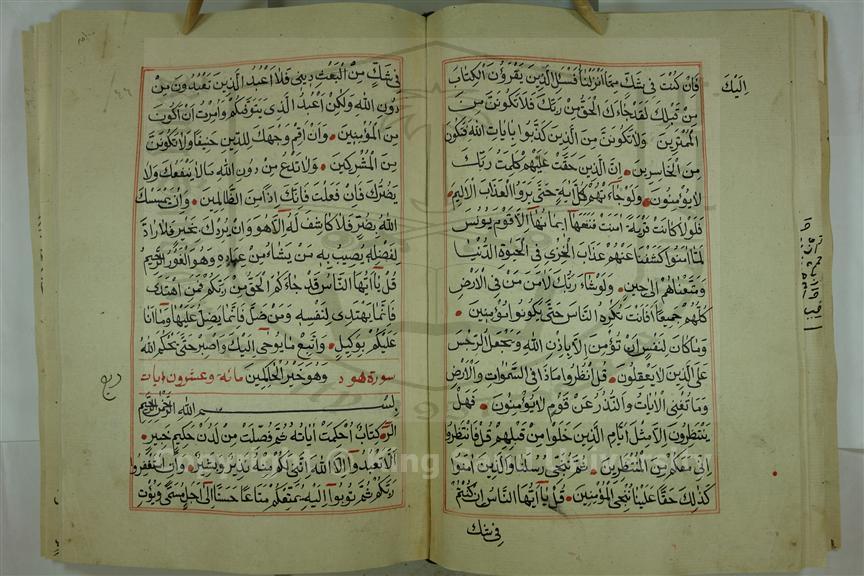 فَاِنْ كُنْتَ فى شَكٍّ مِمَّا اَنْزَلْنَا فَسْئَلِ الَّذينَ يَقْرَؤُنَ الْكِتَابَ
اِلَيْكَ
مِنْ قَبْلِكَ لَقَدْ جَاءَكَ الْحَقُّ مِنْ رَبِّكَ فَلَا تَكُونَنَّ مِنَ
الْمُمْتَرينَ وَلَا تَكُونَنَّ مِنَ الَّذينَ كَذَّبُوا بِاٰيَاتِ اللهِ فَتَكُونَ
مِنَ الْخَاسِرينَ اِنَّ الَّذينَ حَقَّتْ عَلَيْهِمْ كَلِمَتُ رَبِّكَ
لَا يُؤْمِنُونَ وَلَوْ جَاءَتْهُمْ كُلُّ اٰيَةٍ حَتّٰى يَرَوُا الْعَذَابَ الْاَليمَ
فَلَوْلَا كَانَتْ قَرْيَةٌ اٰمَنَتْ فَنَفَعَهَا ايمَانُهَا اِلَّا قَوْمَ يُونُسَ
لَمَّا اٰمَنُوا كَشَفْنَا عَنْهُمْ عَذَابَ الْخِزْىِ فِى الْحَيٰوةِ الدُّنْيَا
وَمَتَّعْنَاهُمْ اِلٰى حينٍ وَلَوْ شَاءَ رَبُّكَ لَاٰمَنَ مَنْ فِى الْاَرْضِ
كُلُّهُمْ جَميعًا اَفَاَنْتَ تُكْرِهُ النَّاسَ حَتّٰى يَكُونُوا مُؤْمِنينَ
وَمَا كَانَ لِنَفْسٍ اَنْ تُؤْمِنَ اِلَّا بِاِذْنِ اللهِ وَيَجْعَلُ الرِّجْسَ
عَلَى الَّذينَ لَا يَعْقِلُونَ قُلِ انْظُرُوا مَاذَا فِى السَّمٰوَاتِ وَالْاَرْضِ
وَمَا تُغْنِى الْاٰيَاتُ وَالنُّذُرُ عَنْ قَوْمٍ لَا يُؤْمِنُونَ فَهَلْ
يَنْتَظِرُونَ اِلَّا مِثْلَ اَيَّامِ الَّذينَ خَلَوْا مِنْ قَبْلِهِمْ قُلْ فَانْتَظِرُوا
اِنّى مَعَكُمْ مِنَ الْمُنْتَظِرينَ ثُمَّ نُنَجّى رُسُلَنَا وَالَّذينَ اٰمَنُوا
كَذٰلِكَ حَقًّا عَلَيْنَا نُنْجِ الْمُؤْمِنينَ قُلْ يَا اَيُّهَا النَّاسُ اِنْ كُنْتُمْ
فى شك
فى شَكٍّ مِنَ الْبَعْثِ دينى فَلَا اَعْبُدُ الَّذينَ تَعْبُدُونَ مِنْ
دُونِ اللهِ وَلٰكِنْ اَعْبُدُ اللهَ الَّذى يَتَوَفّٰيكُمْ وَاُمِرْتُ اَنْ اَكُونَ
مِنَ الْمُؤْمِنينَ وَاَنْ اَقِمْ وَجْهَكَ لِلدّينِ حَنيفًا وَلَا تَكُونَنَّ
مِنَ الْمُشْرِكينَ وَلَا تَدْعُ مِنْ دُونِ اللهِ مَا لَا يَنْفَعُكَ وَلَا
يَضُرُّكَ فَاِنْ فَعَلْتَ فَاِنَّكَ اِذًا مِنَ الظَّالِمينَ وَاِنْ يَمْسَسْكَ
اللهُ بِضُرٍّ فَلَا كَاشِفَ لَهُ اِلَّا هُوَ وَاِنْ يُرِدْكَ بِخَيْرٍ فَلَا رَادَّ
لِفَضْلِهِ يُصيبُ بِهِ مَنْ يَشَاءُ مِنْ عِبَادِهِ وَهُوَ الْغَفُورُ الرَّحيمُ
قُلْ يَا اَيُّهَا النَّاسُ قَدْ جَاءَكُمُ الْحَقُّ مِنْ رَبِّكُمْ فَمَنِ اهْتَدٰى
فَاِنَّمَا يَهْتَدى لِنَفْسِهِ وَمَنْ ضَلَّ فَاِنَّمَا يَضِلُّ عَلَيْهَا وَمَا اَنَا
عَلَيْكُمْ بِوَكيلٍ وَاتَّبِعْ مَا يُوحٰى اِلَيْكَ وَاصْبِرْ حَتّٰى يَحْكُمَ اللهُ
وَهُوَ خَيْرُ الْحَاكِمينَ
سورة هود مائة وعشرون اٰيات
بِسْمِ اللهِ الرَّحْمٰنِ الرَّحيمِ
الٓرٰ كِتَابٌ اُحْكِمَتْ اٰيَاتُهُ ثُمَّ فُصِّلَتْ مِنْ لَدُنْ حَكيمٍ خَبيرٍ
اَلَّا تَعْبُدُوا اِلَّا اللهَ اِنَّنى لَكُمْ مِنْهُ نَذيرٌ وَبَشيرٌ وَاَنِ اسْتَغْفِرُوا
رَبَّكُمْ ثُمَّ تُوبُوا اِلَيْهِ يُمَتِّعْكُمْ مَتَاعًا حَسَنًا اِلٰى اَجَلٍ مُسَمًّى وَيُؤْتِ
Copyright © King Saud University